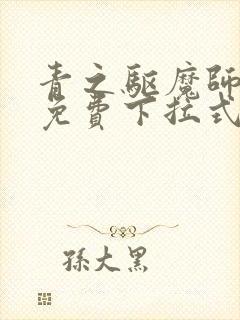 青之驅魔師
免費下拉式
孫大黑